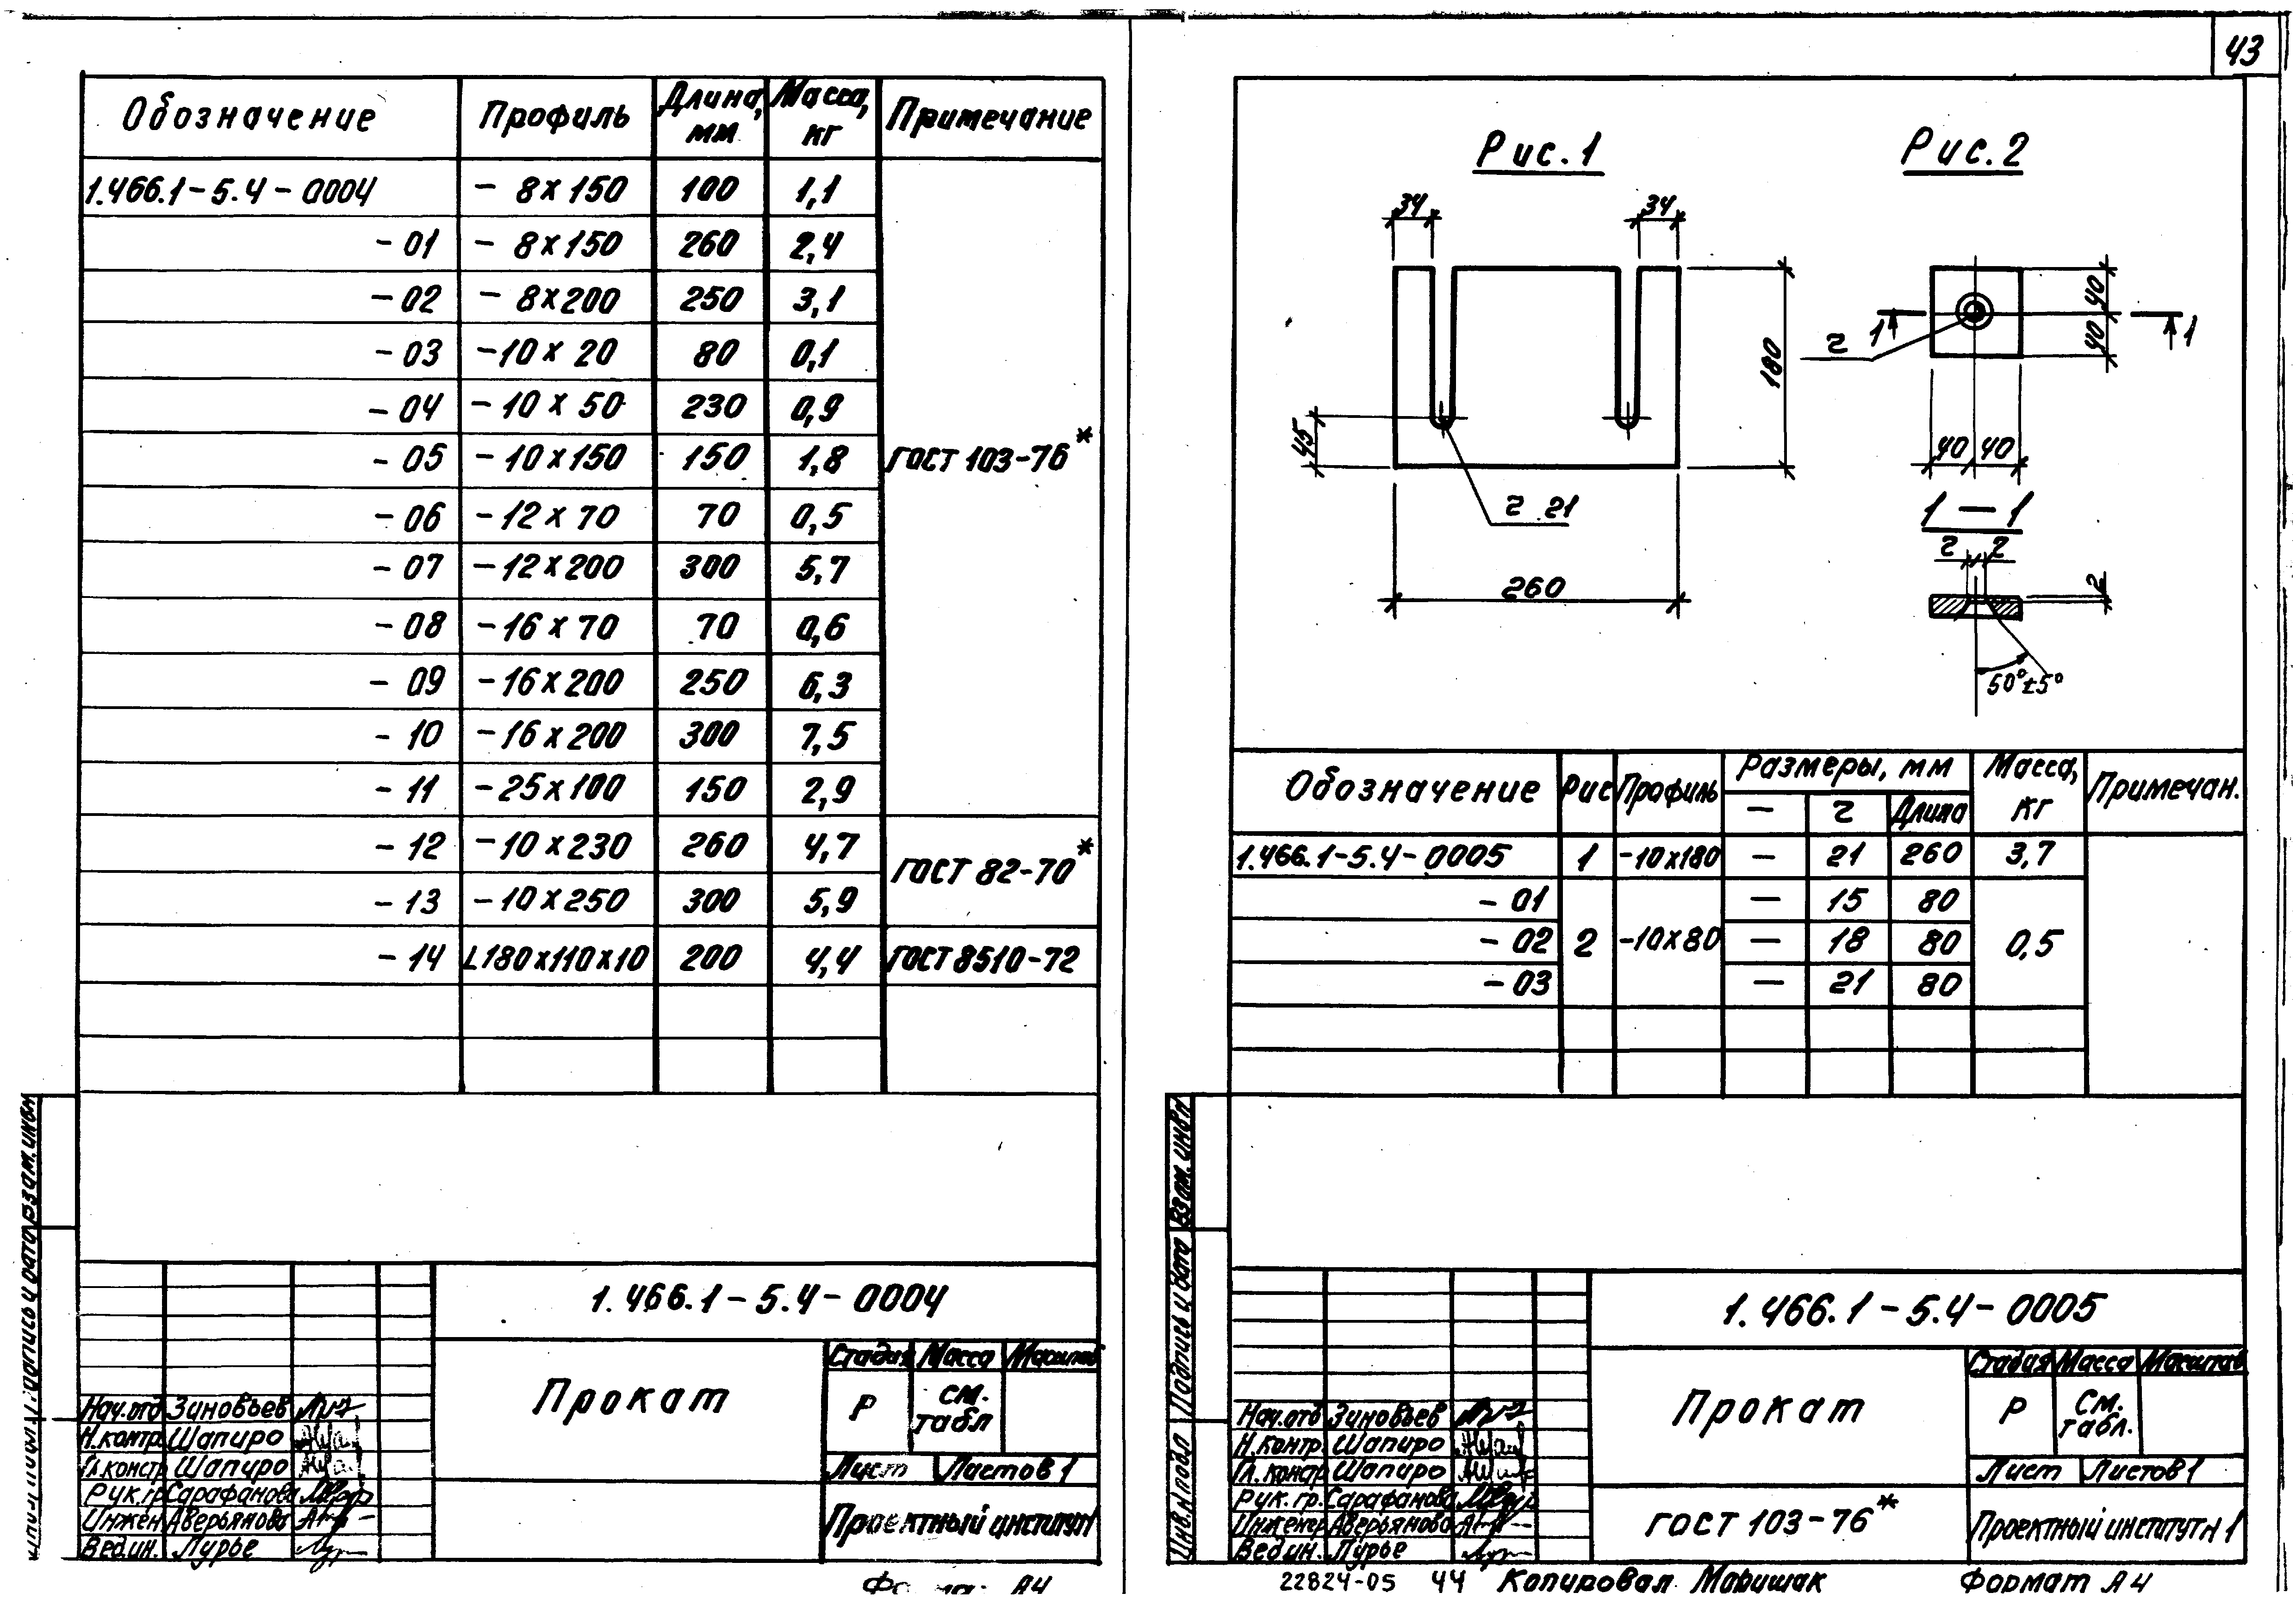 43
Обозначение Профиль Длина, мм Масса, кг Примечание
1.466.1-5.4-0004 - 8×150 100 1,1
- 01 - 8×150 260 2,4
- 02 - 8×200 250 3,1
- 03 -10×20 80 0,1
- 04 -10×50 230 0,9
- 05 -10×150 150 1,8 ГОСТ 103-76*
- 06 -12×70 70 0,5
- 07 -12×200 300 5,7
- 08 -16×70 70 0,6
- 09 -16×200 250 6,3
- 10 -16×200 300 7,5
- 11 -25×100 150 2,9
- 12 -10×230 260 4,7 ГОСТ 82-70*
- 13 -10×250 300 5,9
- 14 L180×110×10 200 4,4 ГОСТ 8510-72
1.466.1-5.4-0004
Прокат
Стадия Масса
Р см. табл
Лист Листов 1
Проектный институт
Нач.отд Зиновьев
Н.контр. Шапиро
Гл.констр Шапиро
Рук.гр. Сарафанова
Инжен Аверьянова
Вед.ин. Лурье
А4
Рис.1
34 34
180
45
г 21
260
Рис.2
40
40
1 1
г
40 40
1-1
г 2
2
50°±5°
Обозначение Рис Профиль Размеры, мм Масса, кг Примечан.
— г Длина
1.466.1-5.4-0005 1 -10×180 — 21 260 3,7
- 01 — 15 80
- 02 2 -10×80 — 18 80 0,5
- 03 — 21 80
Взам. инв.н
Подпись и дата
Инв.н подл
1.466.1-5.4-0005
Прокат
Стадия Масса Масштаб
Р См. табл.
Лист Листов 1
ГОСТ 103-76*
Проектный институт н 1
Нач.отд Зиновьев
Н.контр. Шапиро
Гл.констр Шапиро
Рук.гр. Сарафанова
Инженер Аверьянова
Вед.ин. Лурье
22824-05 44 Копировал Маришак Формат А4